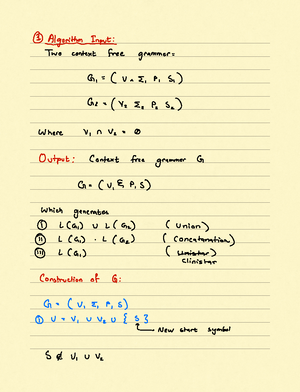 ① Algorithm Input:
Two context free grammer:
G₁ = ( V₁ Σ, P, S₁ )
G₂ = ( V₂ Σ₂ P₂ S₂ )
Where V₁ ∩ V₂ = ∅
Output: Context free grammer G
G = ( V, Σ, P, S )
Which generates
ⓘ L(G₁) ∪ L(G₂) ( Union )
ⓘⓘ L(G₁) . L(G₂) ( Concatenation )
ⓘⓘⓘ L(G₁) ( Clinister )
Construction of G:
G = ( V, Σ, P, S )
① V = V₁ ∪ V₂ ∪ { S }
New start symbol
S ∉ V₁ ∪ V₂